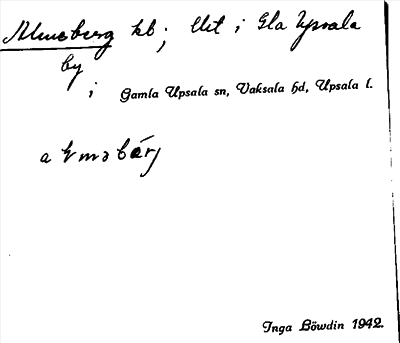 Almeberg kb; Urt i Gla Upsala
by
i Gamla Upsala sn, Vaksala hd, Upsala l.
Inga Löwdin 1942.